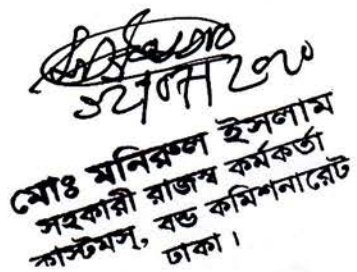 মোঃ মনিরুল ইসলাম
সহকারী রাজস্ব কর্মকর্তা
কাস্টমস্, বন্ড কমিশনারেট
ঢাকা।